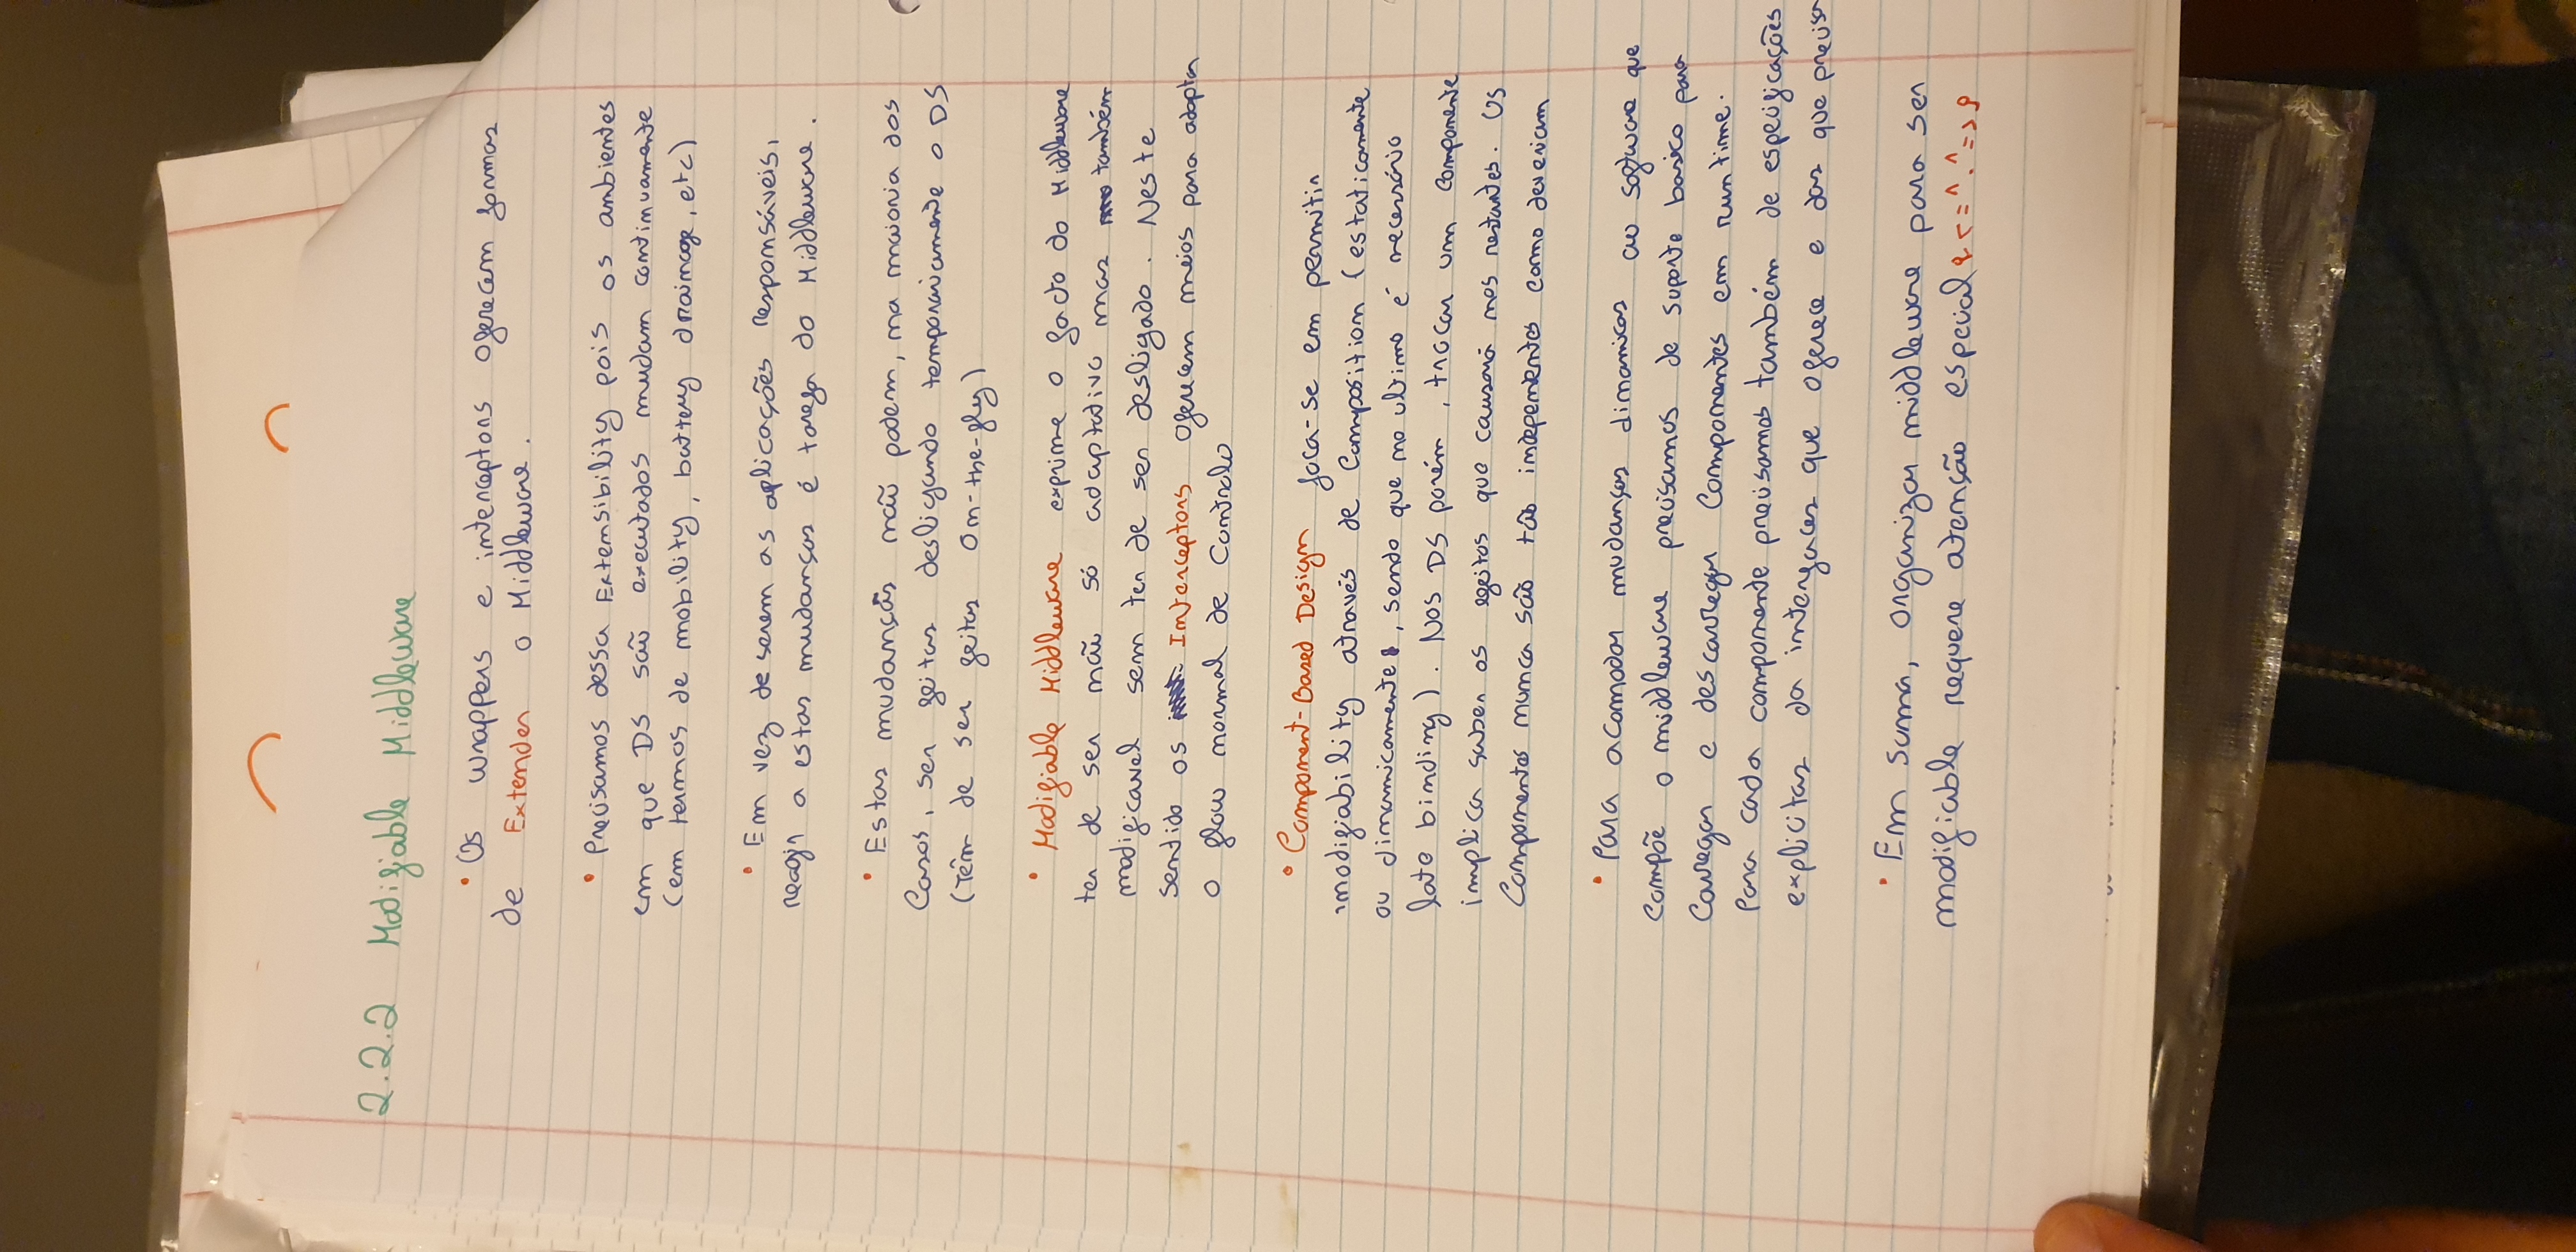 2.2.2 Modifiable Middleware
• Os wrappers e interceptors oferecem formas
de Extender o Middleware.
• Precisamos dessa Extensibility pois os ambientes
em que DS são executados mudam continuamente
(em termos de mobility, battery drainage, etc)
• Em vez de serem as aplicações responsáveis,
reagir a estas mudanças é tarefa do Middleware.
• Estas mudanças não podem, na maioria dos
Casos, ser feitas desligando temporariamente o DS
(Têm de ser feitas On-the-fly)
• Modifiable Middleware exprime o facto do Middleware
ter de ser não só adaptativo mas também
modificavel sem ter de ser desligado. Neste
sentido os Interceptors oferecem meios para adaptar
o flow normal de Controlo
• Component-Based Design foca-se em permitir
modifiability através de Composition (estaticamente
ou dinamicamente, sendo que no ultimo é necessário
late binding). Nos DS porém, trocar um componente
implica saber os efeitos que causará nos restantes. Os
Componentes nunca são tão indepententes como deveriam
• Para acomodar mudanças dinamicas ao software que
compõe o middleware precisamos de suporte basico para
Carregar e descarregar Componentes em runtime.
Para cada componente precisamos também de especificações
explicitas da interfaces que oferece e das que precisa
• Em suma, organizar middleware para ser
modifiable requere atenção especial <=^.^=>